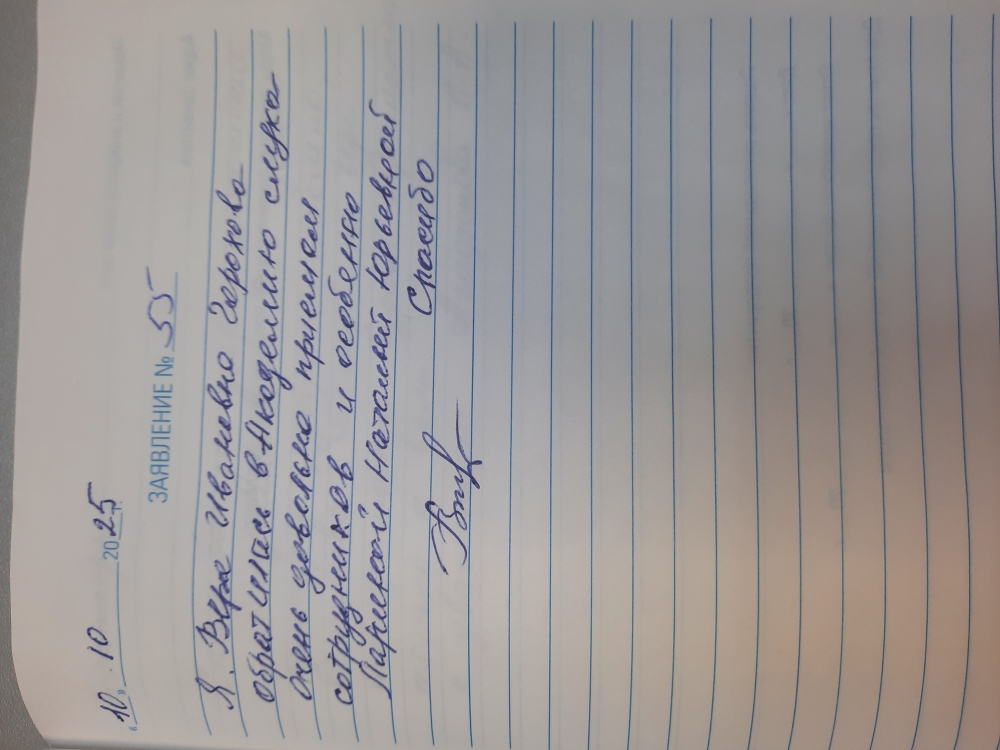 "10" 10 2025 г.
ЗАЯВЛЕНИЕ № 55
Я. Вера Ивановна
обратилась в Академию слуха
очень довольна приемом
сотрудников и особенно
Наталией Юрьевной
Спасибо